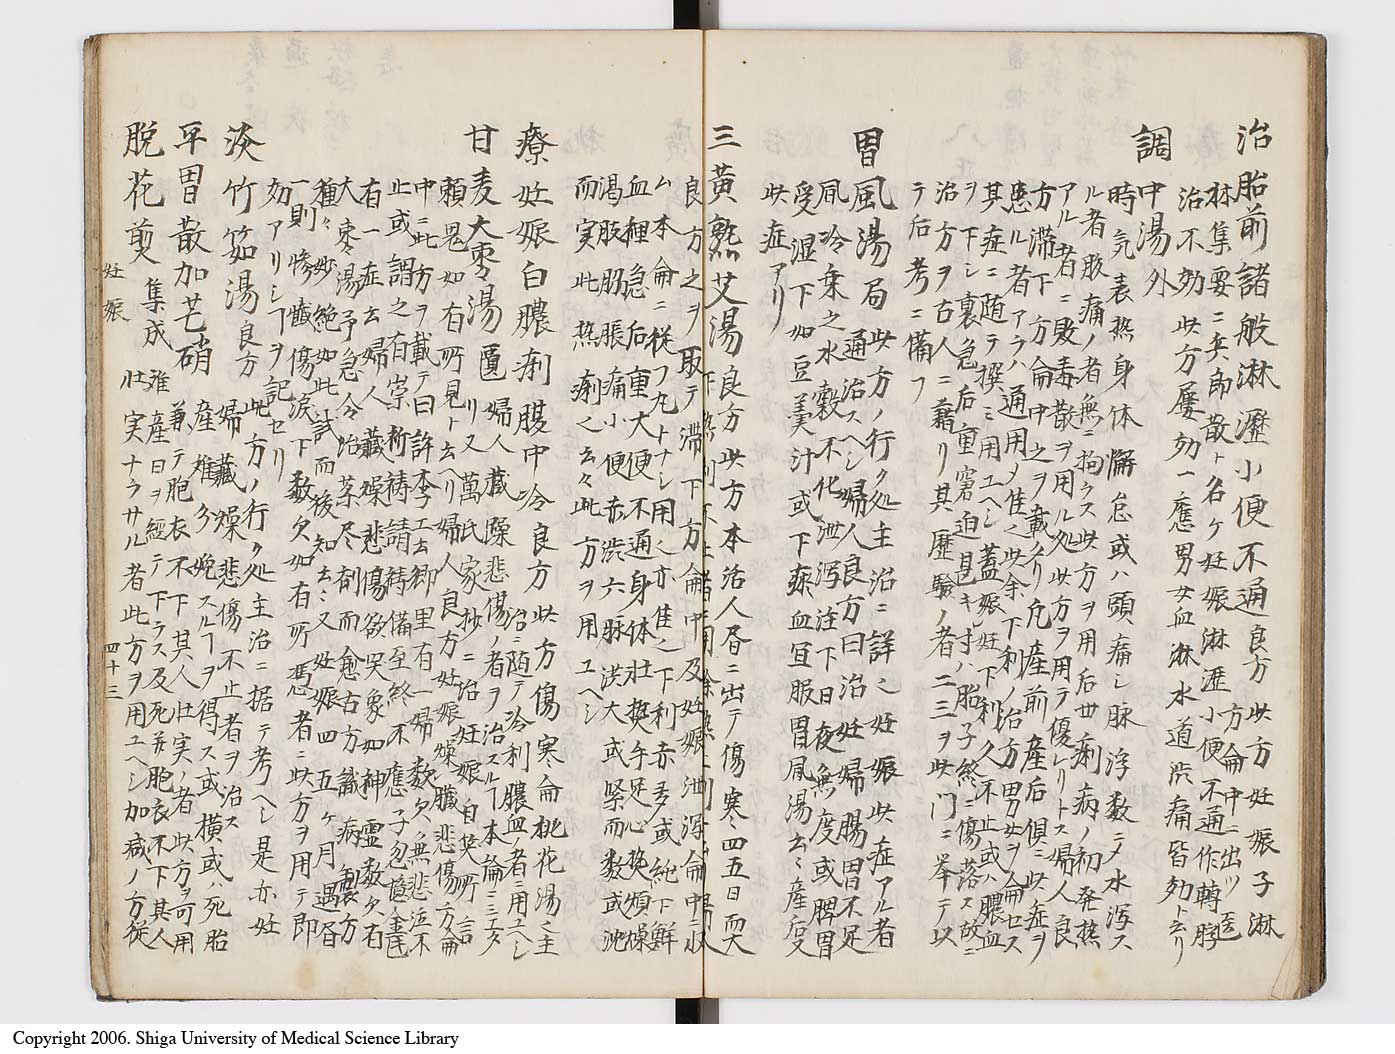 治胎前諸般淋瀝小便不通良方 此方妊娠子淋
方侖中ニ出ツ医
林集要ニ兵郎散ト名ケ妊娠淋瀝小便不通作轉脬
治不効此方屡効一應男女血淋水道渋痛皆効ト云リ
調中湯外
時気表热身体懈怠或ハ頭痛シ脉浮数ニノ水瀉ス
ル者腹痛ノ者無ニ拘ラス此方ヲ用后世痢病ノ初発热
アル者ニ敗毒散ヲ用ル処此方ヲ用テ優レリトス婦人良
方滞下方侖中之ヲ載タリ凡産前産后倶ニ此症ヲ
患ル者アラハ通用ノ佳之此余下利ノ治方男女ヲ侖セス
其症ニ随テ撰ミ用ユヘシ蓋娠妊下利久不止或ハ膿血
ヲ下シ裏急后重窘迫甚キ寸ハ胎子終ニ傷落ス故ニ
治方ヲ古人ニ藉リ其歴驗ノ者二三ヲ此門ニ挙テ以
テ后考ニ備フ
胃風湯局 此方ノ行ク処主治ニ詳之妊娠此症アル者
通治スヘシ婦人良方曰治妊婦腸胃不足
風冷乗之水穀不化泄瀉注下日夜無度或脾胃
受湿下如豆羹汁或下瘀血宜服胃風湯云々産后又
此症アリ
三黄熟艾湯良方 此方本活人書ニ出テ傷寒四五日而大
下热利
良方之ヲ取テ滞下方侖中及妊娠泄瀉侖中ニ收
ム本侖ニ從フ丸トナシ用之亦佳之下利赤多或純下鮮
血裡急后重大便不通身体壮热手足心热煩燥
渇腹肋脹痛小便赤渋六脉洪大或緊而数或沈
而実此热痢之云々此方ヲ用ユヘシ
療妊娠白膿痢腹中冷良方 此方傷寒侖桃花湯之主
治ニ随テ冷利膿血ノ者ニ用ユヘシ
甘麦大棗湯匱 婦人蔵躁悲傷ノ者ヲ治スル丁本論ニ
リ又萬氏家抄ニ治妊娠自笑所言
頼鬼如有所見ト云ヘリ婦人良方妊娠燥臓悲傷方侖
中ニ此方ヲ載テ曰許李工云郷里有一婦数欠無悲泣不
止或謂之有崇祈禱請禱備至終不應予忽憶
有一症云婦人蔵燥悲傷欲哭象如神霊数欠右
大棗湯予急令治薬尽剤而愈古方識病製方
種々妙絶如此試而後知云々又妊娠四五ヶ月遇昏
一則惨慽傷涙下数欠如有所憑者ニ此方ヲ用テ即
効アリシ丁ヲ記セリ
淡竹筎湯良方 此方ノ行ク処主治ニ据テ考ヘシ是亦妊
婦臓燥悲傷不止者ヲ治ス
平胃散加芒硝 産難多娩スル丁ヲ得ス或横或ハ死胎
兼テ胞衣不下其人壮実ノ者此方ヲ可用
脱花煎集成 難産日ヲ經テ下ラス及死并胞衣不下其人
壮実ナラサル者此方ヲ用ユヘシ加减ノ方従
妊娠
四十三
Copyright 2006. Shiga University of Medical Science Library